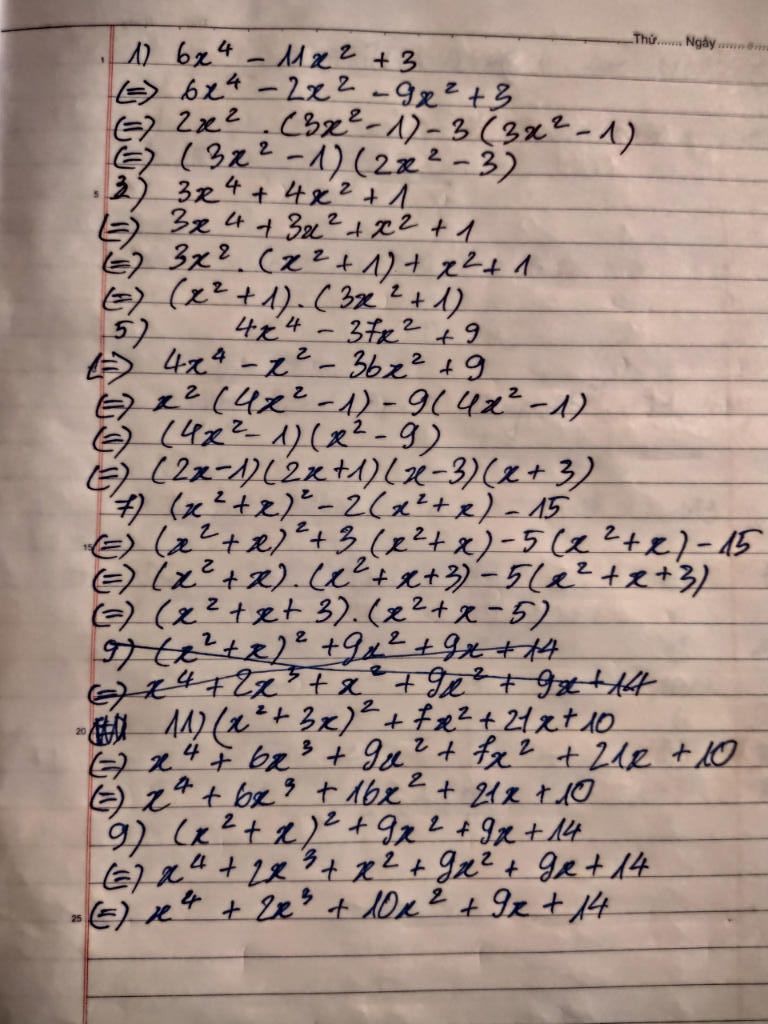 Thứ....... Ngày .......
1) 6x⁴ - 11x² + 3
(=) 6x⁴ - 2x² - 9x² + 3
(=) 2x² . (3x² - 1) - 3 (3x² - 1)
(=) (3x² - 1) (2x² - 3)
5 3) 3x⁴ + 4x² + 1
(=) 3x⁴ + 3x² + x² + 1
(=) 3x² . (x² + 1) + x² + 1
(=) (x² + 1) . (3x² + 1)
5) 4x⁴ - 37x² + 9
(=) 4x⁴ - x² - 36x² + 9
(=) x² (4x² - 1) - 9(4x² - 1)
(=) (4x² - 1) (x² - 9)
(=) (2x-1) (2x+1) (x-3) (x+3)
7) (x² + x)² - 2(x² + x) - 15
15 (=) (x² + x)² + 3 (x² + x) - 5 (x² + x) - 15
(=) (x² + x) . (x² + x + 3) - 5(x² + x + 3)
(=) (x² + x + 3) . (x² + x - 5)
9) (x² + x)² + 9x² + 9x + 14
(=) x⁴ + 2x³ + x² + 9x² + 9x + 14
20 11) (x² + 3x)² + 7x² + 21x + 10
(=) x⁴ + 6x³ + 9x² + 7x² + 21x + 10
(=) x⁴ + 6x³ + 16x² + 21x + 10
9) (x² + x)² + 9x² + 9x + 14
(=) x⁴ + 2x³ + x² + 9x² + 9x + 14
25 (=) x⁴ + 2x³ + 10x² + 9x + 14